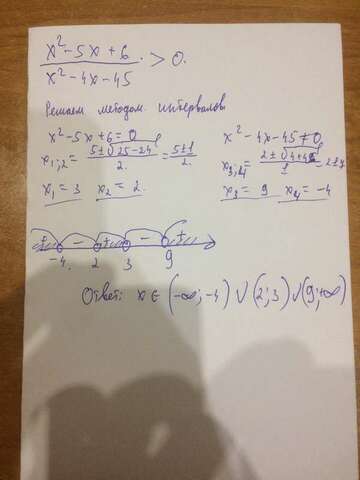 x²-5x+6 / x²-4x-45 > 0.
Решаем методом интервалов
x²-5x+6=0
x₁;₂ = 5±√25-24 / 2. = 5±1 / 2.
x₁ = 3 x₂ = 2.
x²-4x-45≠0
x₃;₄ = 2±√4+45 / 1 =
x₃ = 9 x₄ = -4
+ - + - +
-4 2 3 9
Ответ: x ∈ (-∞;-4) ∪ (2;3) ∪ (9;+∞)